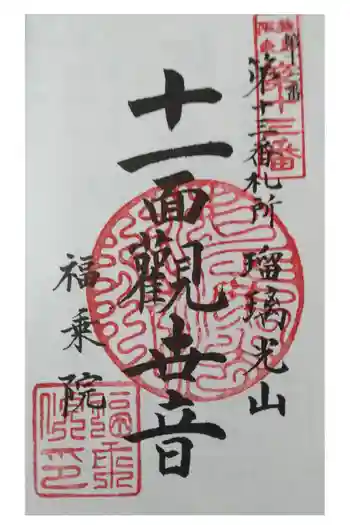 第十三番
第十三番札所 瑠璃光山
十一面觀世音
福乗院